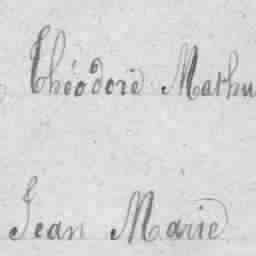 Théodore Mathu
Jean Marie